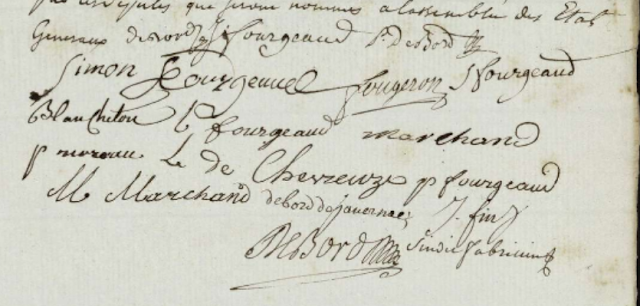 qui seront nommés a l'assemblée des Etats
Generaux debord J fourgeaud P. deBord
Simon fourgeaud fougeron J fourgeaud
Blancheton L fourgeaud marchand
p moreau Le de Chevreuze p fourgeaud
M Marchand debord de javernac J. fin
DeBord Sindic fabricien